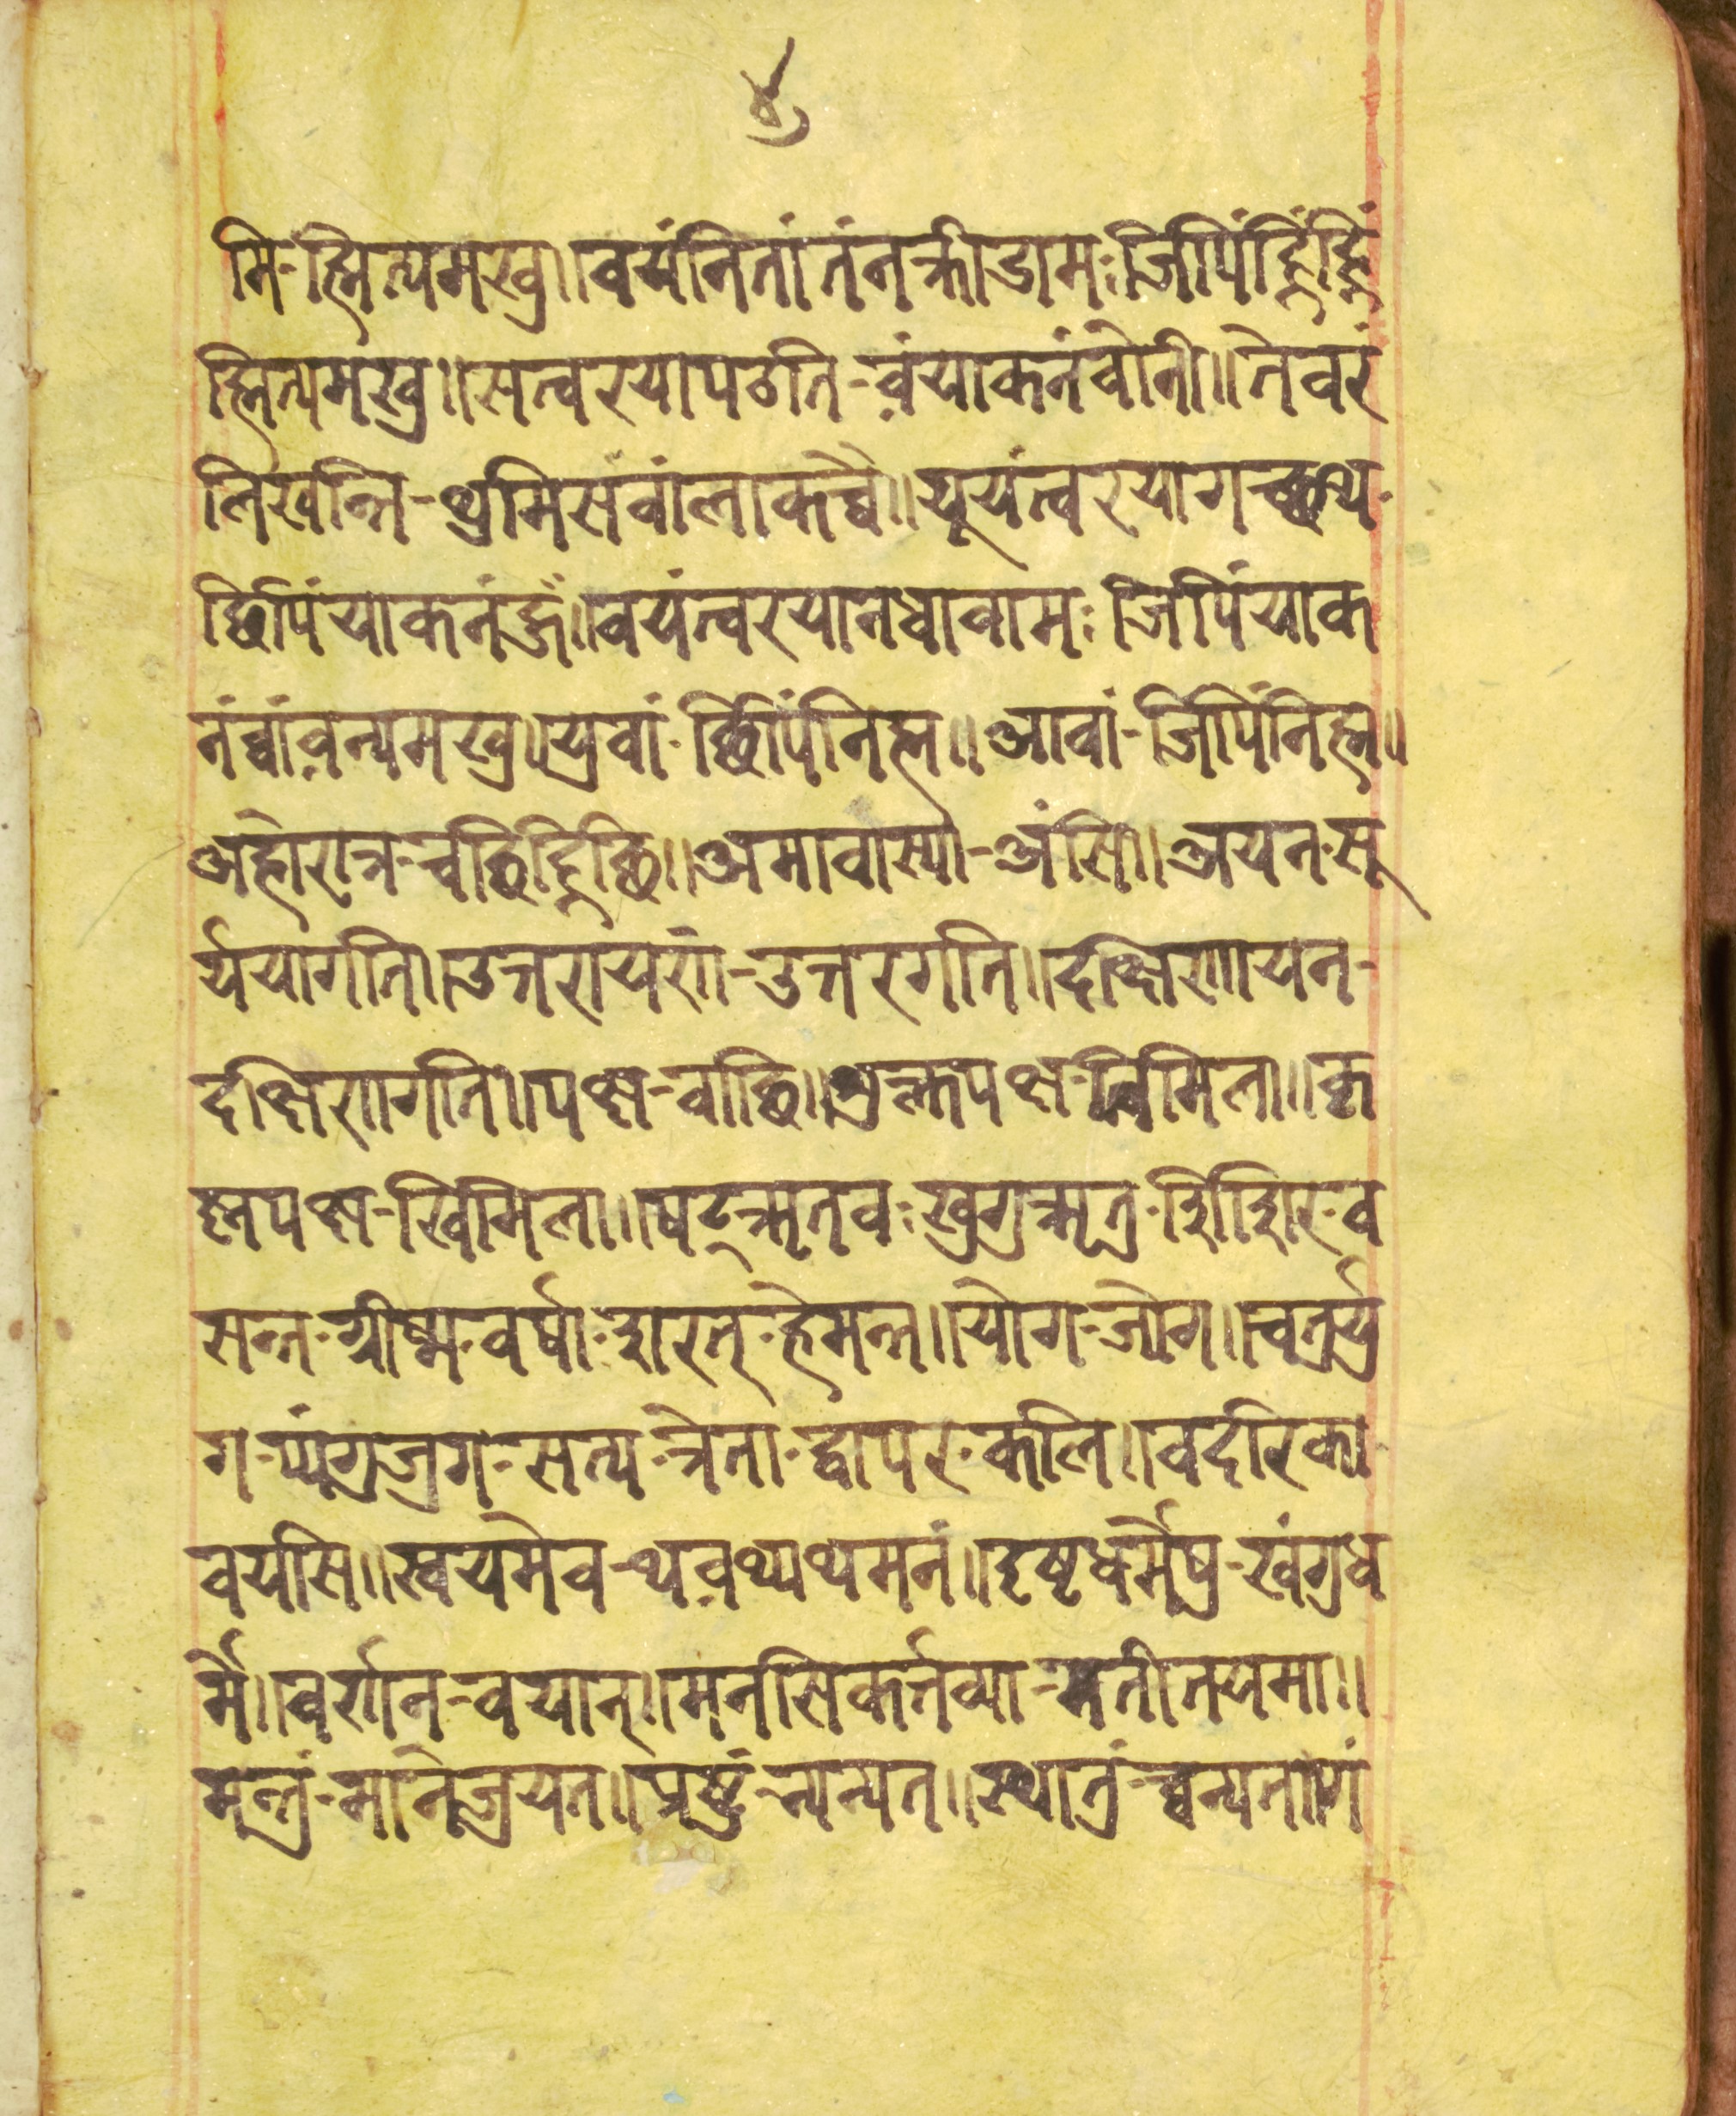 ४
मि-ह्मित्यमखु॥वयंनितांतंनक्रीडामः जिपिंह्निंह्निं
ह्मित्यमखु॥सत्वरयापठति-व़ंयाकनंवोनी॥तेवरं
लिखन्ति-थ्रमिसंवांलाकचै॥यूयंत्वरयागच्छथ-
छिपिंयाकनंह्नुं॥वयंत्वरयानधावामः जिपिंयाक
नंब्वांव़न्यमखु॥युवां-छिपिंनिह्म॥आवां-जिपिंनिह्म॥
अहोरात्र-चछिह्निछि॥अमावास्या-अंसि॥अयन-सू
र्य्ययागति॥उत्तरायण-उत्तरगति॥दक्षिणायन-
दक्षिणगति॥पक्ष-वाछि॥शुक्लपक्ष-थ्विमिला॥कृ
ष्णपक्ष-खिमिला॥षट्ऋतवः खुगुऋतु-शिशिर-व
सन्त-ग्रीष्म-वर्षा-शरत्-हेमन्त॥योग-जोग॥चतुर्यु
ग-प्यंगुजुग-सत्य-त्रेता-द्वापर-कलि॥वदरिका
वयसि॥स्वयमेव-थव़थ्यथमनं॥दृष्टधर्मेषु-खंगुध
र्मे॥वर्गान-वयान्॥मनसिकर्तव्या-मतीतयमा॥
मन्त्रं-मानेजुयत॥प्रष्टुं-न्यन्यत॥स्थातुं-च्वन्यतापं